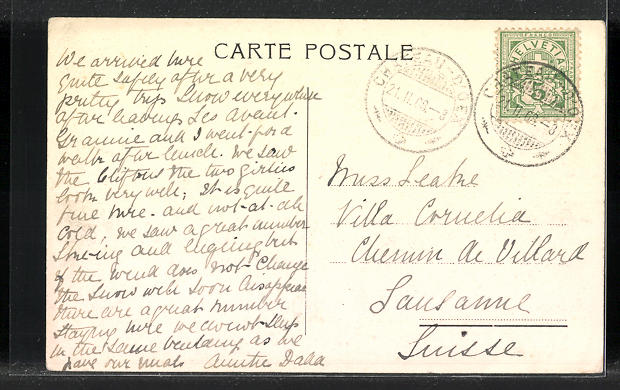 CARTE POSTALE
HELVETIA
FRANCO
5
CHATEAU-D'OEX
21.II.08-8
CHATEAU-D'OEX
II.08-8
We arrived here
quite safely after a very
pretty trip Snow everywhere
after leaving Les Avants.
Grannie and I went for a
walk after lunch. We saw
the Cliftons the two girlies
look very well; It is quite
fine here - and not at all
cold, we saw a great number
and lugeing but
if the wind does not change
the snow will soon disappear
there are a great number
staying here we
in the same as we
have our meals Auntie Dada
Miss Leake
Villa Cornelia
Chemin de Villard
Lausanne
Suisse